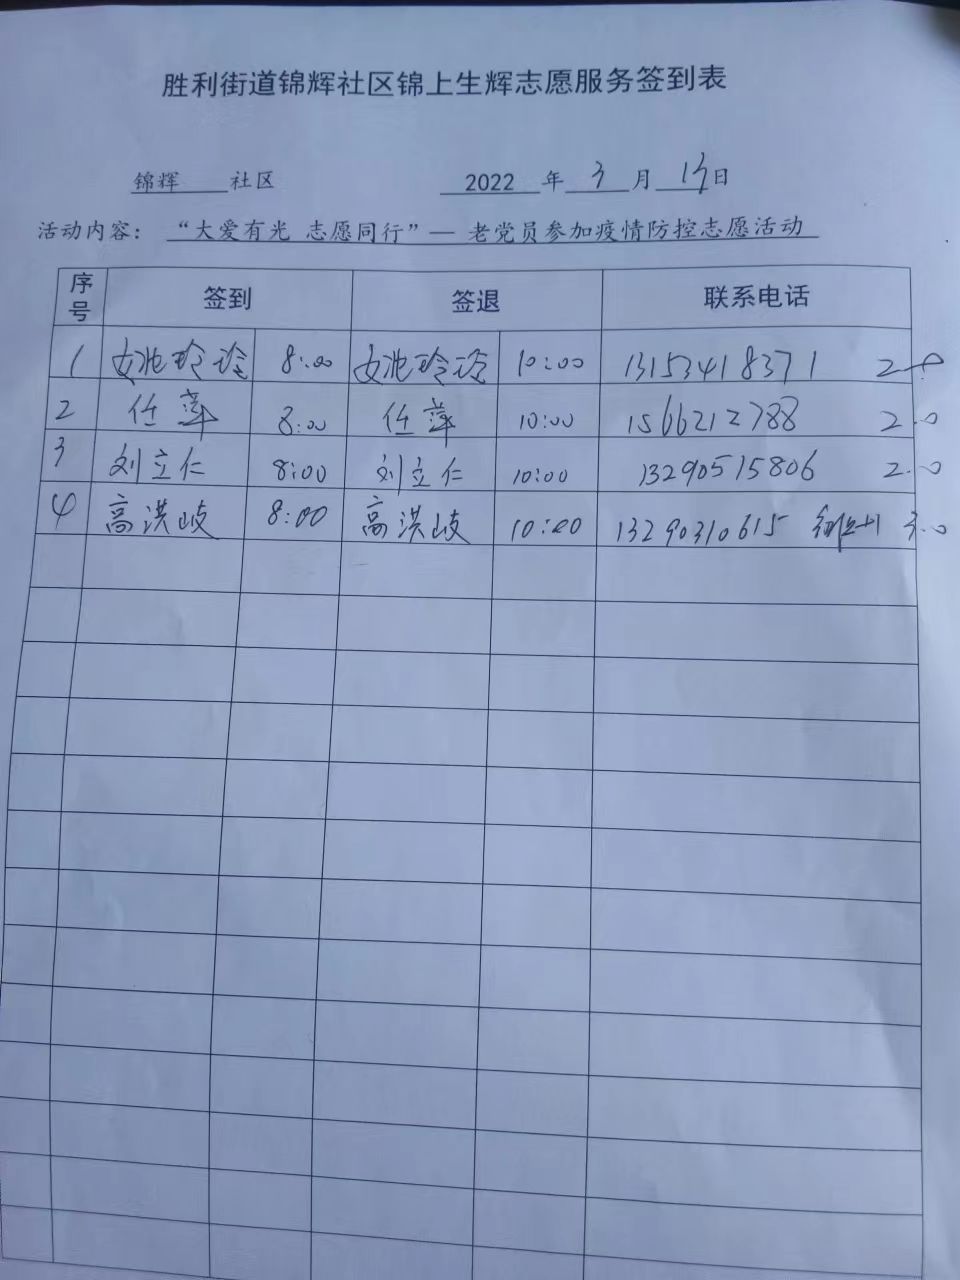 胜利街道锦辉社区锦上生辉志愿服务签到表
锦辉 社区 2022 年 3 月 13 日
活动内容： “大爱有光 志愿同行”— 老党员参加疫情防控志愿活动
序号 签到 签退 联系电话
1 玲玲 8:00 玲玲 10:00 13153418371 2.0
2 任萍 8:00 任萍 10:00 1566212788 2.0
3 刘立仁 8:00 刘立仁 10:00 13290515806 2.0
4 高洪岐 8:00 高洪岐 10:00 13290310615 3.0